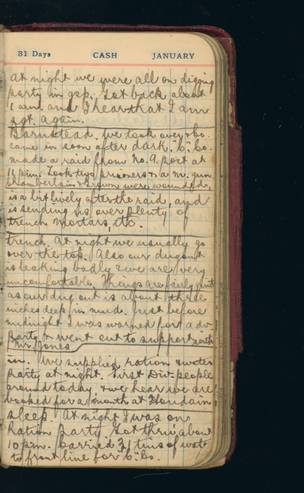 31 Days CASH JANUARY
at night we were all on digging
party in gap. Got back about
1 am and I hear that I am
sgt. again.
Barnstead. We took over & bo.
came in soon after dark. C. Co.
made a raid from No. 9 post at
11 p.m. Took two prisoners & a m. gun
Chamberlain & were wounded.
is a bit lively after the raid, and
is sending us over plenty of
trench mortars, etc.
trench. At night we usually go
over the top. Also our dugout
is leaking badly & we are very
uncomfortable. Things are fairly quiet
as our dug out is about three
inches deep in mud. Just before
midnight I was warned for a dv.
party & went out to support with
Mr. Jones
in. We supplied ration & water
party at night. First Div. people
around today & we hear we are
booked for a month at Houdain
sleep. At night I was on
Ration party. Got thru' about
10 p.m. Carried 3 tins of water
to front line for C. Co.